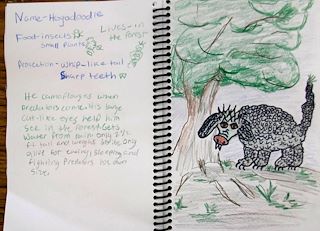 Name-Hogadoodle
Food-insects
Small plants
Lives-in
the forest
Protection-whip-like tail
Sharp teeth
He camoflauges when
predators come. His large
cat-like eyes help him
see in the forest. Gets
water from rain. Only 2½
ft tall and weighs 51lbs. Only
alive for eating, sleeping and
fighting Predators his own
size!